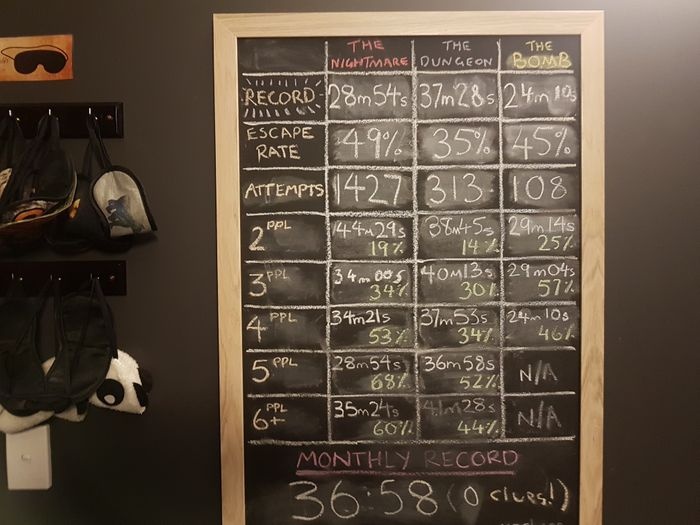 THE NIGHTMARE THE DUNGEON THE BOMB
RECORD 28m54s 37m28s 24m10s
ESCAPE RATE 49% 35% 45%
ATTEMPTS 1427 313 108
2 PPL 44m29s 19% 38m45s 14% 29m14s 25%
3 PPL 34m00s 34% 40m13s 30% 29m04s 57%
4 PPL 34m21s 53% 37m53s 34% 24m10s 46%
5 PPL 28m54s 68% 36m58s 52% N/A
6+ PPL 35m24s 60% 41m28s 44% N/A
MONTHLY RECORD
36:58 (0 clues!)